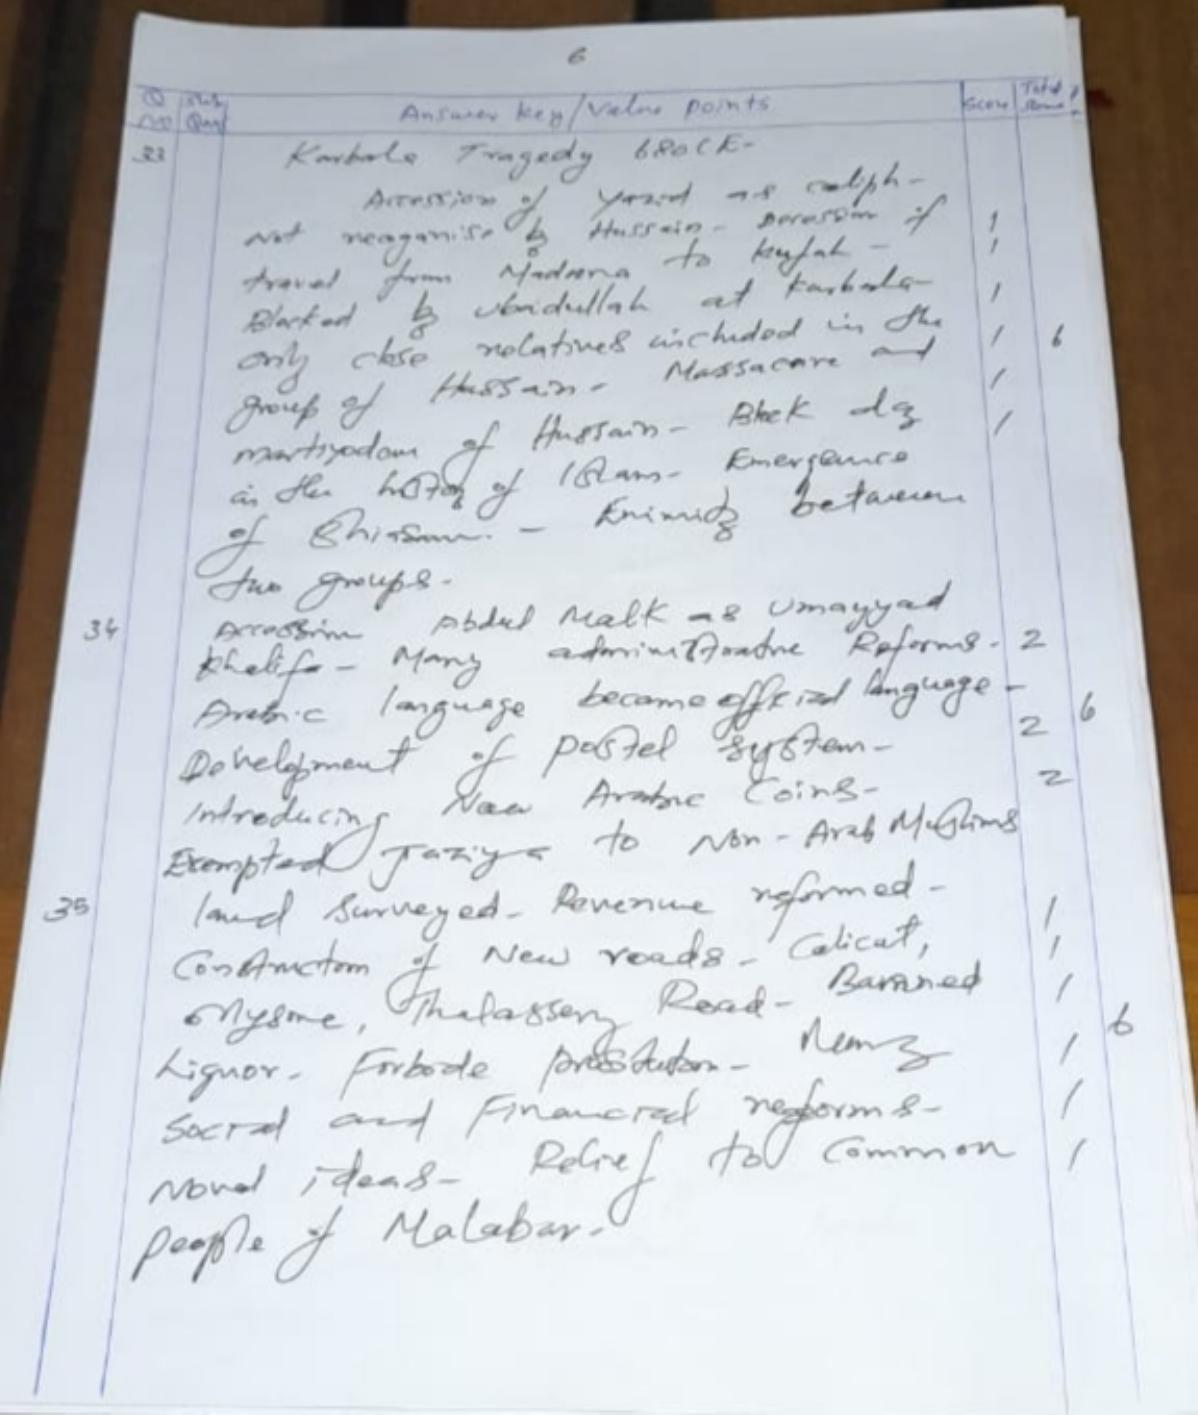 6
Q No Sub Qun Answer key/Value points Score Total Score
33 Karbala Tragedy 680CE-
Accession of Yazid as caliph-
Not by Hussain - of 1
travel from Madeena to Kufah - 1
Blocked by Ubaidullah at Karbala- 1
only close relatives included in the 1 6
group of Hussain - Massacare and 1
martiyodom of Hussain - Black day 1
in the history of Islam - Emergence
of Shiasum. - Enimity between
two groups.
34 Accession Abdul Malk as Umayyad
Khalifa - Many administrative Reforms. 2
Arabic language became official language - 6
Development of postel system - 2
Introducing New Arabic Coins - 2
Exempted Jaziya to Non-Arab Muslims
35 land Surveyed - Revenue reformed - 1
Construction of New roads - Calicut, 1
Mysore, Thalassery Road - Banned 1
Liquor. Forbode - Many 1 6
Social and Financial reforms - 1
Novel ideas - Relief to Common 1
people of Malabar.